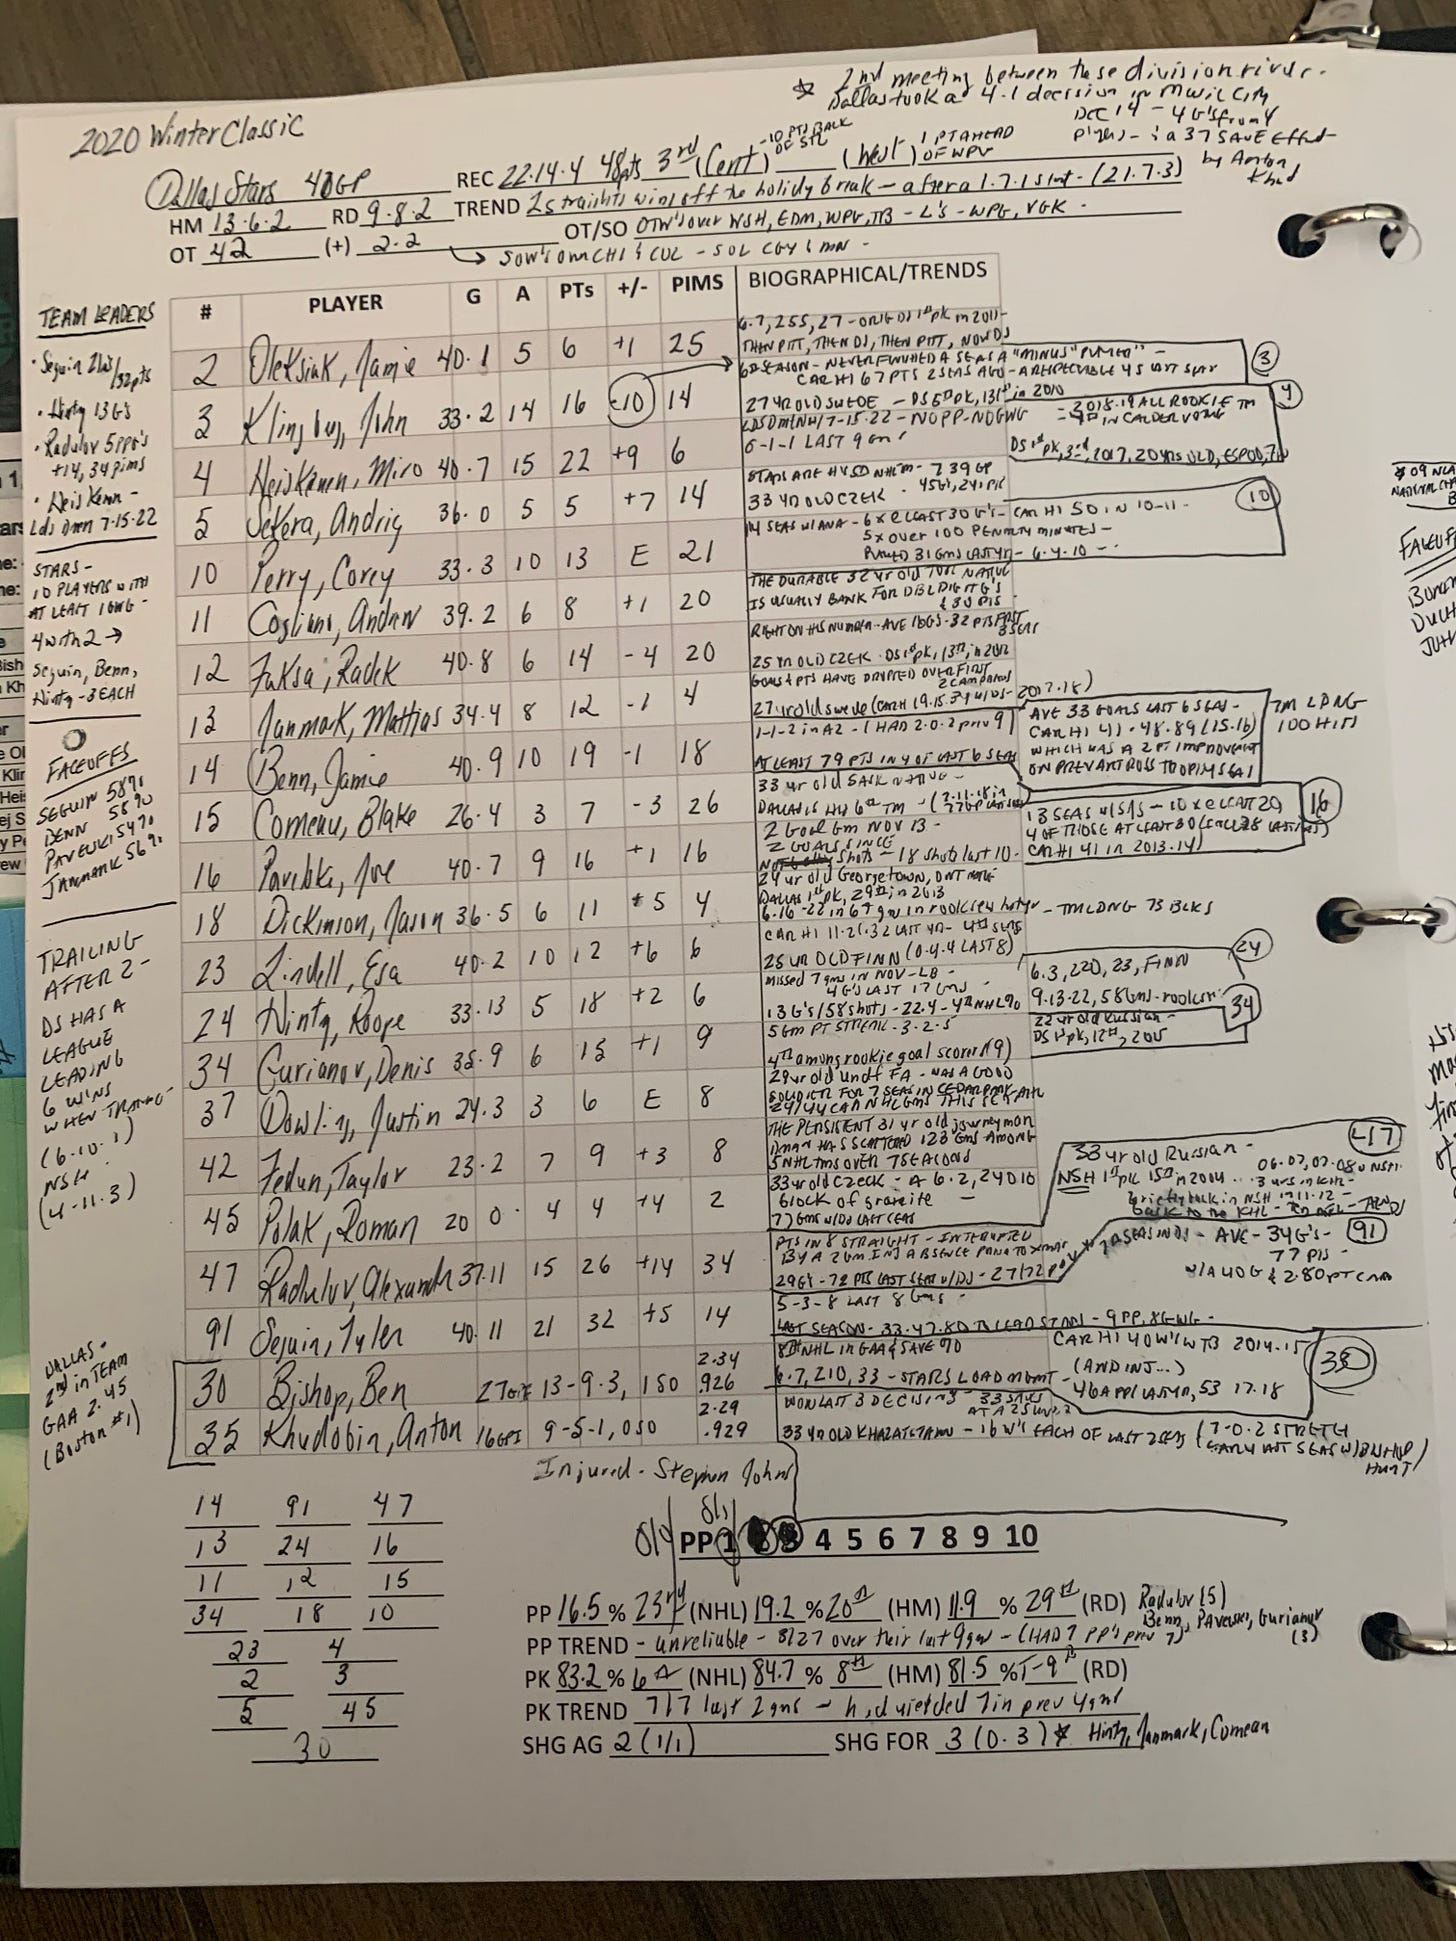 2020 Winter Classic
☆ 2nd meeting between these division rivals -
Dallas took a 4-1 decision in Music City
DEC 14 - 4 G's from 4
players - & a 37 SAVE Effort -
by Anton
Khud
Dallas Stars 40GP REC 22.14.4 48pts 3rd (Cent) -10 PTS BACK OF STL (West) 1 PT AHEAD OF WPG
HM 13.6.2 RD 9.8.2 TREND 2 straights wins off the holidy break - after a 1.7.1 slmt - (21.7.3)
OT 42 (+) 2.2 OT/SO OTW's over NSH, EDM, WPG, TB - L's - WPG, VGK -
→ SOW's over CHI & COL - SOL CGY & MN -
# PLAYER G A PTs +/- PIMS BIOGRAPHICAL/TRENDS
2 Oleksiak, Jamie 40.1 5 6 +1 25
6.7, 255, 27 - ORIG DS 1st pk in 2011 -
THEN PITT, THEN DS, THEN PITT, NOW DS
3 Klingburg, John 33.2 14 16 -10 14
6th SEASON - NEVER FINISHED A SEAS A "MINUS" PLAYER -
CAR HI 67 PTS 2 SEAS AGO - A RESPECTABLE 45 LAST SEAS
3
27 YR OLD SWEDE - DS 5th pk, 131st in 2010
4 Heiskanen, Miro 40.7 15 22 +9 6
LDS DMEN W/ 7-15-22 - NO PP - NO GWG
LAST 9 gms
2018.19 ALL ROOKIE TM
IN CALDER VOTING
4
DS 1st pk, 3rd, 2017, 20 YRS OLD, ESPOO,
5 Sekera, Andrej 36.0 5 5 +7 14
STARS ARE HIS NHL TM - 739 GP
33 YR OLD CZECK -
10 Perry, Corey 33.3 10 13 E 21
14 SEAS W/ ANA - 6 x @ LEAST 30 G's - CAR HI 50 IN 10-11 -
5x OVER 100 PENALTY MINUTES -
PLAYED 31 GMS LAST YR - 6.4.10 -
10
11 Cogliano, Andrew 39.2 6 8 +1 20
THE DURABLE 32 YR OLD NATIVE
IS USUALLY BANK FOR DBL DIGIT G'S
& 30 PTS
12 Faksa, Radek 40.8 6 14 -4 20
RIGHT ON HIS NUMBER - AVE 16 G's - 32 PTS FIRST
3 SEAS
25 YR OLD CZEK - DS 1st pk, 13th, in 2012
13 Janmark, Mattias 34.4 8 12 -1 4
GOALS & PTS HAVE DROPPED OVER FIRST
2 CAMPAIGNS
27 yr old swede (CAR HI 19.15.34 W/ DS - 2017.18)
14 Benn, Jamie 40.9 10 19 -1 18
1-1-2 in A2 - (HAD 2.0.2 prev 9)
AT LEAST 79 PTS IN 4 OF LAST 6 SEAS
AVE 33 GOALS LAST 6 SEAS -
CAR HI 41.48.89 (15.16)
WHICH WAS A 2 PT IMPROVMENT
ON PREV ART ROSS TROPHY SEAS
TM LDNG
100 HITS
15 Comeau, Blake 26.4 3 7 -3 26
33 yr old SASK NATIVE -
DALLAS IS HIS 6th TM -
2 GOAL GM NOV 13 -
16 Pavelski, Joe 40.7 9 16 +1 16
2 GOALS SINCE
SHOTS - 18 shots last 10 -
13 SEAS W/ SJS - 10 x @ LEAST 20,
4 OF THOSE AT LEAST 30 (INCL 38 LAST YR)
CAR HI 41 in 2013.14)
16
18 Dickinson, Jason 36.5 6 11 +5 4
24 yr old Georgetown, ONT NATIVE
DALLAS 1st pk, 29th in 2013
6.16-22 in 67 gms in rookie seas last yr
23 Lindell, Esa 40.2 10 12 +6 6
- TM LDNG 73 BLKS
CAR HI 11-21-32 LAST YR - 4th SEAS
25 YR OLD FINN (0.4.4 LAST 8)
24 Hintz, Roope 33.13 5 18 +2 6
MISSED 7 gms IN NOV - LB -
4 G's LAST 17 GMS -
13 G's / 58 shots - 22.4 - 4th NHL %
6.3, 220, 23, FINN
9.13.22, 58 Gms - rookie yr
24
34 Gurianov, Denis 35.9 6 15 +1 9
5 GM PT STREAK - 3-2-5
4th among rookie goal scorers (9)
22 yr old Russian -
DS 1st pk, 12th, 2015
34
37 Dowling, Justin 24.3 3 6 E 8
29 yr old undf FA - WAS A GOOD
SOLDIER FOR 7 SEAS IN CEDAR PARK - AHL
24/44 CAR NHL GMS THIS SEAS
42 Fedun, Taylor 23.2 7 9 +3 8
THE PERSISTENT 31 yr old journeyman
DMAN HAS SCATTERED 123 GMS AMONG
5 NHL TMS OVER 7 SEASONS
45 Polak, Roman 20 0 4 4 +4 2
33 yr old CZECK - A 6.2, 240 lb
block of granite -
77 GMS W/ DS LAST SEAS
47 Radulov, Alexandr 37.11 15 26 +14 34
PTS IN 8 STRAIGHT - INTERRUPTED
BY A 2 GM INJ ABSENCE PRIOR TO XMAS
29 G's - 72 PTS LAST SEAS W/ DS - 27/72 prev yr
33 yr old Russian -
NSH 1st pk 15th in 2004
06.07, 07.08 w NSH
3 yrs in KHL -
Briefly back in NSH in 11.12 -
back to the KHL -
47
91 Seguin, Tyler 40.11 21 32 +5 14
5-3-8 LAST 8 Gms -
LAST SEASON - 33.47.80 TO LEAD STARS - 9 PP, 8 GWG -
SEAS IN DS - AVE - 34 G's -
77 PTS -
W/ A 40 G & 2.80 PT CAMP
91
30 Bishop, Ben 27 GPI 13-9-3, 1 SO 2.34 .926
8th NHL in GAA & SAVE %
6.7, 210, 33 - STARS LOAD MGMT -
CAR HI 40 W's W TB 2014-15
(AND INJ...)
46 APP LAST YR, 53 17.18
30
35 Khudobin, Anton 16 GPI 9-5-1, 0 SO 2.29 .929
WON LAST 3 DECISIONS -
33 YR OLD KHAZAKSTAN - 16 W's EACH OF LAST 2 SEAS
(7-0.2 STRETCH
EARLY LAST SEAS W/ BISHOP
HURT)
Injured - Stephen Johns
TEAM LEADERS
• Seguin 21a's/32pts
• Hintz 13 G's
• Radulov 5 ppg's
+14, 34 pims
• Heisknen -
Lds Dmn 7-15-22
STARS -
10 PLAYERS WITH
AT LEAST 1 GWG -
4 with 2 →
Seguin, Benn,
Hintz - 3 EACH
FACEOFFS
SEGUIN 58%
BENN 58%
PAVELSKI 54%
JANMARK 56%
TRAILING
AFTER 2 -
DS HAS A
LEAGUE
LEADING
6 WINS
WHEN TRAILING -
(6.10.1)
NSH
(4-11.3)
DALLAS -
2nd in TEAM
GAA 2.45
(Boston #1)
14 91 47
13 24 16
11 12 15
34 18 10
23 4
2 3
5 45
30
PP 1 2 3 4 5 6 7 8 9 10
PP 16.5 % 23rd (NHL) 19.2 % 20th (HM) 11.9 % 29th (RD) Radulov (5)
Benn, Pavelski, Gurianov
(3)
PP TREND - unreliable - 8/27 over their last 9 gms - (HAD 7 PP's prev 7)
PK 83.2 % 6th (NHL) 84.7 % 8th (HM) 81.5 % T-9th (RD)
PK TREND 7/7 last 2 gms - had yielded 7 in prev 4 gms
SHG AG 2 (1/1) SHG FOR 3 (0.3) ☆ Hintz, Janmark, Comeau
FACEOFF